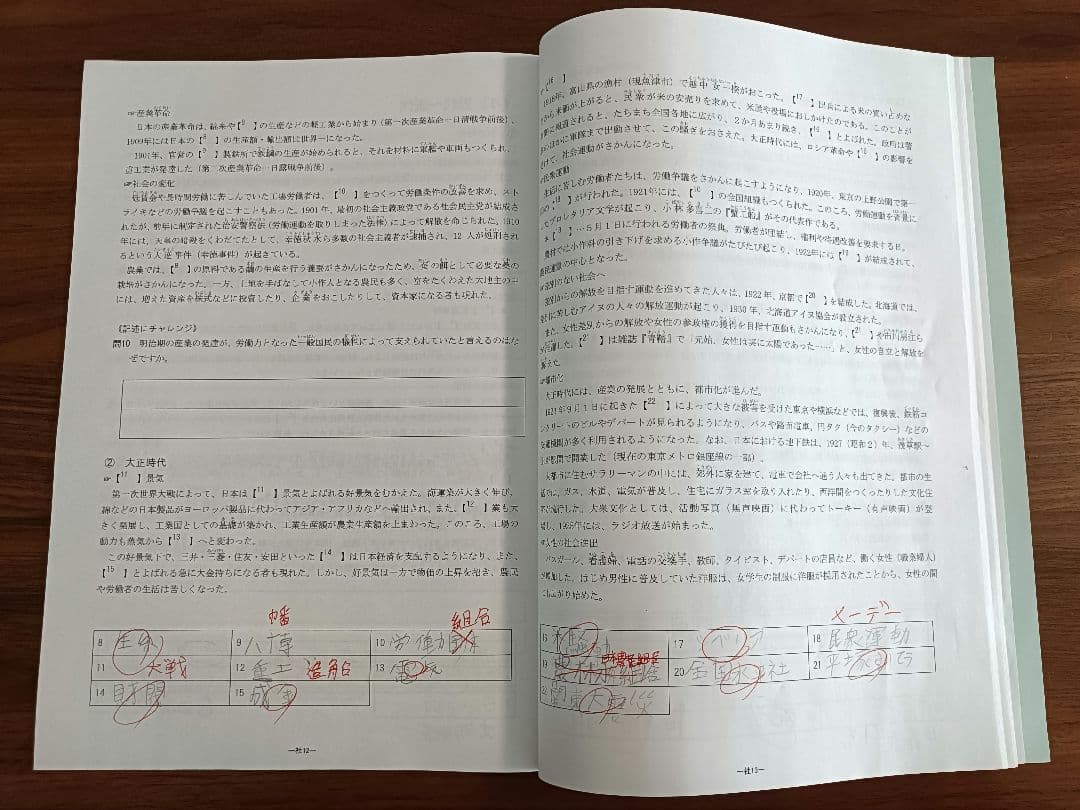 ☞産業革命
日本の産業革命は、綿糸や【8 】の生産などの軽工業から始まり（第一次産業革命—日清戦争前後）、
1909年には日本の【8 】の生産額・輸出額は世界一になった。
1901年、官営の【9 】製鉄所で鉄鋼の生産が始められると、それを材料に軍艦や車両もつくられ、
重工業が発達した（第二次産業革命—日露戦争前後）。
☞社会の変化
低賃金や長時間労働に苦しんでいた工場労働者は、【10 】をつくって労働条件の改善を求め、スト
ライキなどの労働争議を起こすこともあった。1901年、最初の社会主義政党である社会民主党が結成さ
れたが、前年に制定された治安警察法（労働運動を取りしまった法律）によって解散を命じられた。1910
年には、天皇の暗殺をくわだてたとして、幸徳秋水ら多数の社会主義者が逮捕され、12人が処刑され
るという大逆事件（幸徳事件）が起きている。
農業では、【8 】の原料である繭の生産を行う養蚕がさかんになったため、蚕の餌として必要な桑の
栽培がさかんになった。一方、土地を手ばなして小作人となる農民も多く、広をたくわえた大地主の中
には、増えた資産を株式などに投資したり、企業をおこしたりして、資本家になる者も現れた。
《記述にチャレンジ》
問10 明治期の産業の発達が、労働力となった一般国民の犠牲によって支えられていたと言えるのはな
ぜですか。
② 大正時代
☞【11 】景気
第一次世界大戦によって、日本は【11 】景気とよばれる好景気をむかえた。海運業が大きく伸び、
綿などの日本製品がヨーロッパ製品に代わってアジア・アフリカなどへ輸出され、また、【12 】業も大
きく発展し、工業国としての基礎が築かれ、工業生産額が農業生産額を上まわった。このころ、工場の
動力も蒸気から【13 】へと変わった。
この好景気で、三井・三菱・住友・安田といった【14 】は日本経済を支配するようになり、また、
【15 】とよばれる急に大金持ちになる者も現れた。しかし、好景気は一方で物価の上昇を招き、農民
や労働者の生活は苦しくなった。
8 生糸 9 八幡 幡 10 労働 組合
11 大戦 12 重工 造船 13 電気
14 財閥 15 成金
―社12―
【16 】
1918年、富山県の漁村（現魚津市）で越中女一揆がおこった。【17 】出兵による米の買い占めな
から米価が上がると、民衆が米の安売りを求めて、米屋や役場におしかけたのである。このことが
新聞に報道されると、たちまち全国各地に広がり、2か月あまり続き、【16 】とよばれた。政府は警
察のほかに軍隊まで出動させて、この騒ぎをおさえた。大正時代には、ロシア革命や【16 】の影響を
うけて、社会運動がさかんになった。
生活に苦しむ労働者たちは、労働争議をさかんに起こすようになり、1920年、東京の上野公園で第一
回の・【18 】が行われた。1921年には、【10 】の全国組織もつくられた。このころ、労働運動を背景に
してプロレタリア文学が起こり、小林多喜二の『蟹工船』がその代表作である。
【18 】…5月1日に行われる労働者の祭典。労働者が団結し、権利や待遇改善を要求する日。
農村では小作料の引き下げを求める小作争議がたびたび起こり、1922年には【19 】が結成されて、
農民運動の中心となった。
☞差別のない社会へ
差別からの解放を目指す運動を進めてきた人々は、1922年、京都で【20 】を結成した。北海道では、
差別に苦しむアイヌの人々の解放運動が起こり、1930年、北海道アイヌ協会が設立された。
また、女性差別からの解放や女性の参政権の獲得を目指す運動もさかんになり、【21 】や市川房江ら
が活躍した。【21 】は雑誌『青鞜』で「元始、女性は実に太陽であった……」と、女性の自立と解放を
訴えた。
☞都市化
大正時代には、産業の発展とともに、都市化が進んだ。
1923年9月1日に起きた【22 】によって大きな被害を受けた東京や横浜などでは、復興後、鉄筋コ
ンクリートのビルやデパートが見られるようになり、バスや路面電車、円タク（今のタクシー）などの
交通機関が多く利用されるようになった。なお、日本における地下鉄は、1927（昭和2）年、浅草駅～
上野駅間で開業した（現在の東京メトロ銀座線の一部）。
大都市に住むサラリーマンの中には、郊外に家を建て、電車で会社へ通う人々も出てきた。都市の生
活では、ガス、水道、電気が普及し、住宅にガラス窓を取り入れたり、西洋間をつくったりした文化住
宅が流行した。大衆文化としては、活動写真（無声映画）に代わってトーキー（有声映画）が登
場し、1925年には、ラジオ放送が始まった。
☞女性の社会進出
バスガール、看護婦、電話の交換手、教師、タイピスト、デパートの店員など、働く女性（職業婦人）
が増加した。はじめ男性に普及していた洋服は、女学生の制服に洋服が採用されたことから、女性の間
にも広がり始めた。
16 米騒動 17 シベリア 18 民衆運動 メーデー
19 日本農民組合 20 全国水平社 21 平塚らいてう
22 関東大震災
―社13―